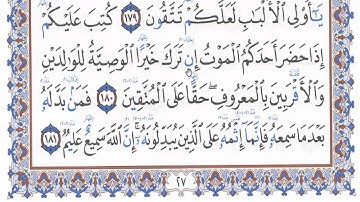 يَٰٓأُو۟لِى ٱلْأَلْبَٰبِ لَعَلَّكُمْ تَتَّقُونَ ١٧٩ كُتِبَ عَلَيْكُمْ
إِذَا حَضَرَ أَحَدَكُمُ ٱلْمَوْتُ إِن تَرَكَ خَيْرًا ٱلْوَصِيَّةُ لِلْوَٰلِدَيْنِ
وَٱلْأَقْرَبِينَ بِٱلْمَعْرُوفِ حَقًّا عَلَى ٱلْمُتَّقِينَ ١٨٠ فَمَنۢ بَدَّلَهُۥ
بَعْدَ مَا سَمِعَهُۥ فَإِنَّمَآ إِثْمُهُۥ عَلَى ٱلَّذِينَ يُبَدِّلُونَهُۥٓ إِنَّ ٱللَّهَ سَمِيعٌ عَلِيمٌ ١٨١
٢٧